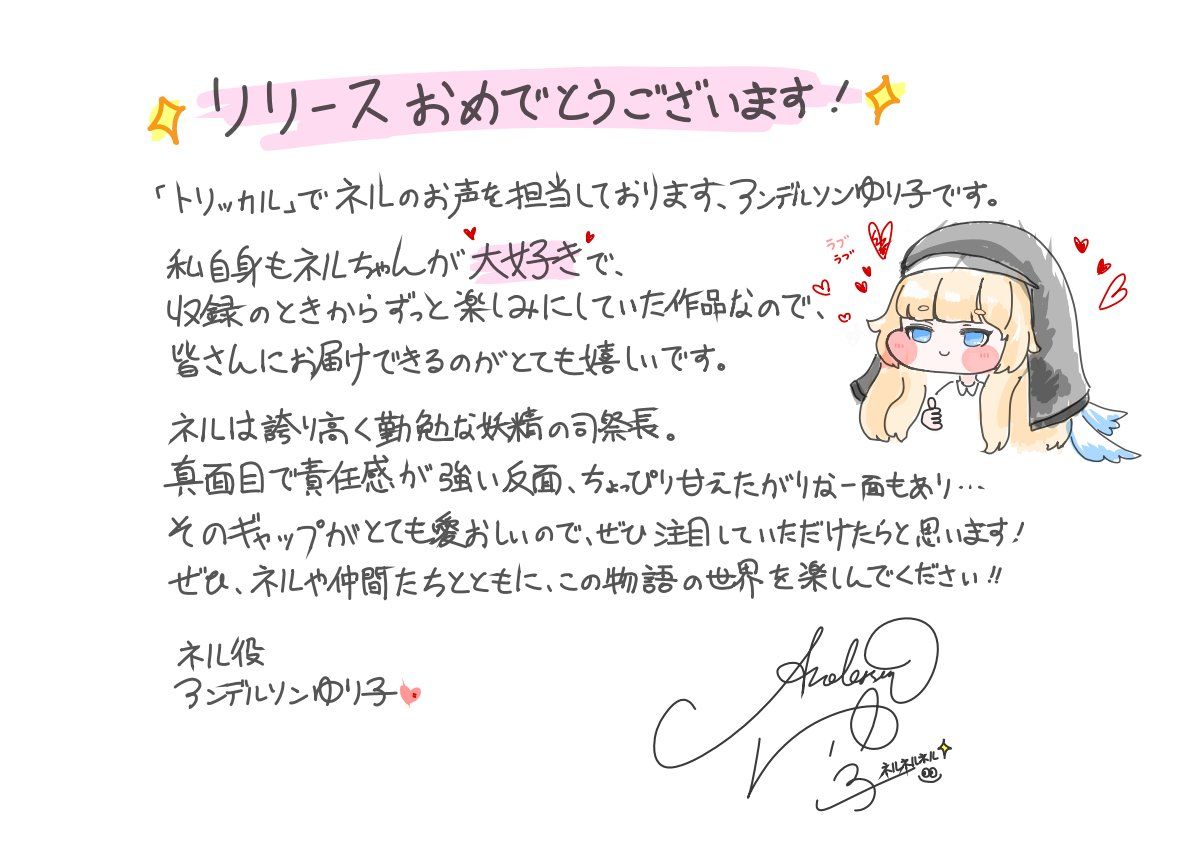 リリースおめでとうございます!
「トリッカル」でネルのお声を担当しております、アンデルソンゆり子です。
私自身もネルちゃんが大好きで、
収録のときからずっと楽しみにしていた作品なので、
皆さんにお届けできるのがとても嬉しいです。
ラブ
ラブ
ネルは誇り高く勤勉な妖精の司祭長。
真面目で責任感が強い反面、ちょっぴり甘えたがりな一面もあり…
そのギャップがとても愛おしいので、ぜひ注目していただけたらと思います!
ぜひ、ネルや仲間たちとともに、この物語の世界を楽しんでください!!
ネル役
アンデルソンゆり子
Anderson
ゆり子
ネルネルネル